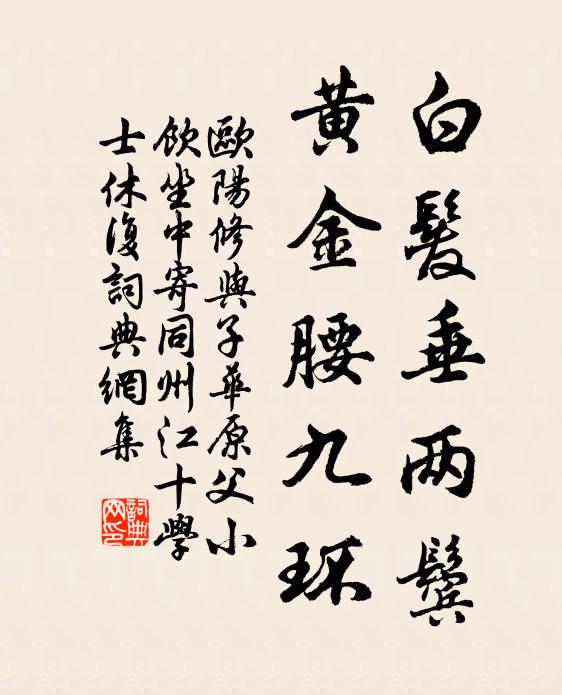 白髮垂两鬢
黃金腰九环
歐陽修與子華原父小
飲坐中寄同州江十學
士休復詞典網集
詞典
网印